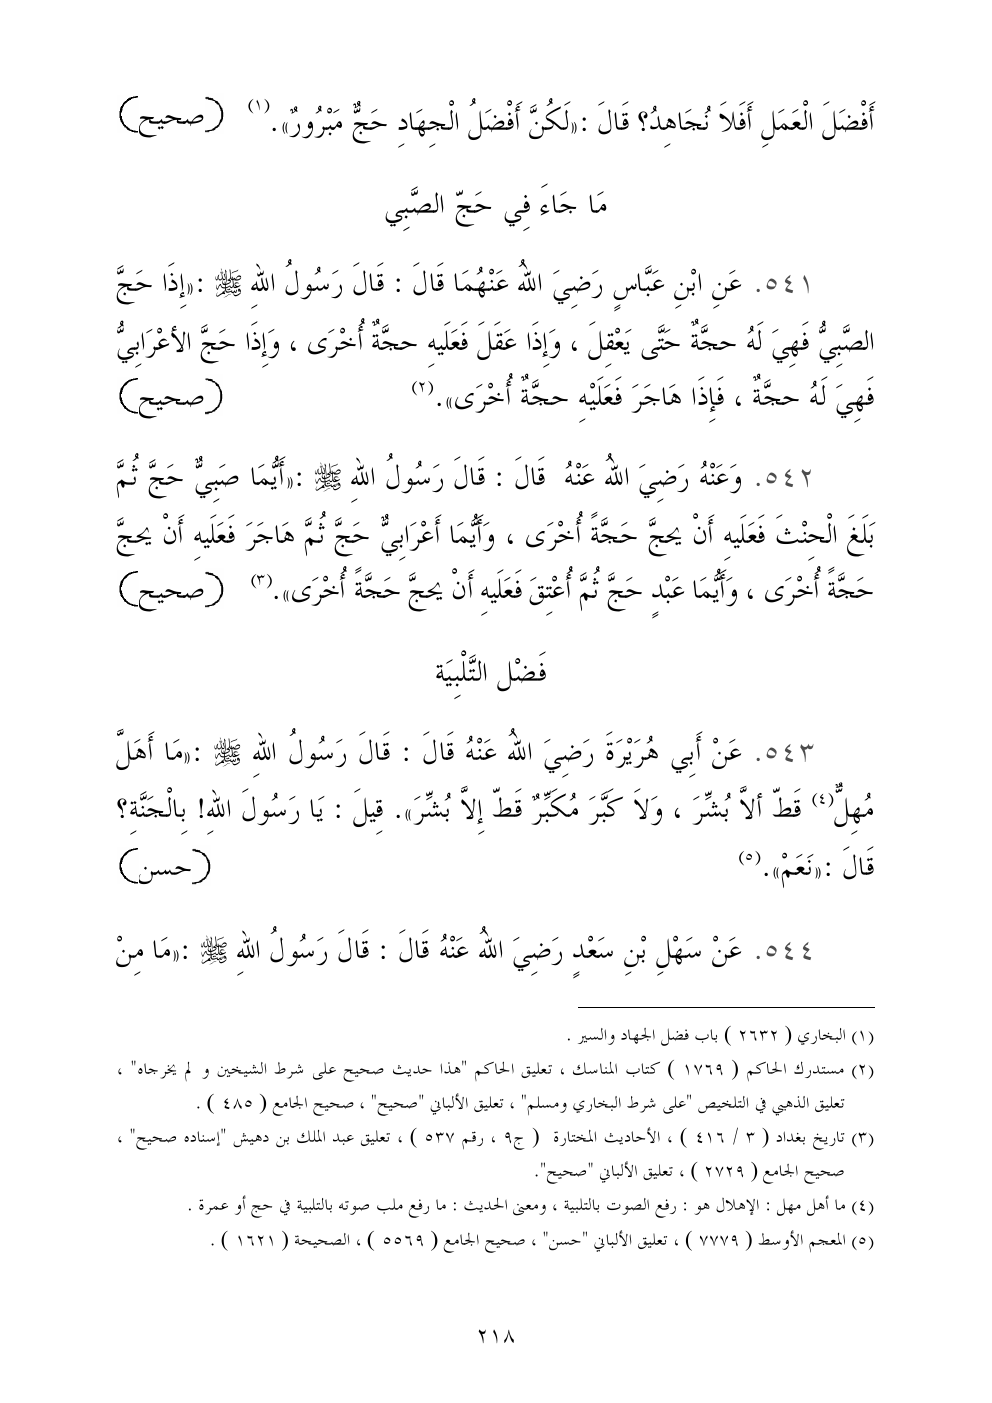 أَفْضَلَ الْعَمَلِ أَفَلاَ نُجَاهِدُ؟ قَالَ :«لَكُنَّ أَفْضَلُ الْجِهَادِ حَجٌّ مَبْرُورٌ».(١) (صحيح)
مَا جَاءَ فِي حَجّ الصَّبِي
٥٤١. عَنِ ابْنِ عَبَّاسٍ رَضِيَ اللهُ عَنْهُمَا قَالَ : قَالَ رَسُولُ اللهِ ﷺ :«إِذَا حَجَّ
الصَّبِيُّ فَهِيَ لَهُ حجَّةٌ حَتَّى يَعْقِلَ ، وَإِذَا عَقَلَ فَعَلَيهِ حجَّةٌ أُخْرَى ، وَإِذَا حَجَّ الأعْرَابيُّ
فَهِيَ لَهُ حجَّةٌ ، فَإِذَا هَاجَرَ فَعَلَيْهِ حجَّةٌ أُخْرَى».(٢) (صحيح)
٥٤٢. وَعَنْهُ رَضِيَ اللهُ عَنْهُ قَالَ : قَالَ رَسُولُ اللهِ ﷺ :«أَيُّمَا صَبِيٌّ حَجَّ ثُمَّ
بَلَغَ الْحِنْثَ فَعَلَيهِ أَنْ يحجَّ حَجَّةً أُخْرَى ، وَأَيُّمَا أَعْرَابيٌّ حَجَّ ثُمَّ هَاجَرَ فَعَلَيهِ أَنْ يحجَّ
حَجَّةً أُخْرَى ، وَأَيُّمَا عَبْدٍ حَجَّ ثُمَّ أُعْتِقَ فَعَلَيهِ أَنْ يحجَّ حَجَّةً أُخْرَى».(٣) (صحيح)
فَضْل التَّلْبِيَة
٥٤٣. عَنْ أَبِي هُرَيْرَةَ رَضِيَ اللهُ عَنْهُ قَالَ : قَالَ رَسُولُ اللهِ ﷺ :«مَا أَهَلَّ
مُهِلٌّ(٤) قَطّ ألاَّ بُشِّرَ ، وَلاَ كَبَّرَ مُكَبِّرٌ قَطّ إِلاَّ بُشِّرَ». قِيلَ : يَا رَسُولَ اللهِ! بِالْجَنَّةِ؟
قَالَ :«نَعَمْ».(٥) (حسن)
٥٤٤. عَنْ سَهْلِ بْنِ سَعْدٍ رَضِيَ اللهُ عَنْهُ قَالَ : قَالَ رَسُولُ اللهِ ﷺ :«مَا مِنْ
(١) البخاري ( ٢٦٣٢ ) باب فضل الجهاد والسير .
(٢) مستدرك الحاكم ( ١٧٦٩ ) كتاب المناسك ، تعليق الحاكم "هذا حديث صحيح على شرط الشيخين و لم يخرجاه" ،
تعليق الذهبي في التلخيص "على شرط البخاري ومسلم" ، تعليق الألباني "صحيح" ، صحيح الجامع ( ٤٨٥ ) .
(٣) تاريخ بغداد ( ٣ / ٤١٦ ) ، الأحاديث المختارة ( ج٩ ، رقم ٥٣٧ ) ، تعليق عبد الملك بن دهيش "إسناده صحيح" ،
صحيح الجامع ( ٢٧٢٩ ) ، تعليق الألباني "صحيح".
(٤) ما أهل مهل : الإهلال هو : رفع الصوت بالتلبية ، ومعنى الحديث : ما رفع ملب صوته بالتلبية في حج أو عمرة .
(٥) المعجم الأوسط ( ٧٧٧٩ ) ، تعليق الألباني "حسن" ، صحيح الجامع ( ٥٥٦٩ ) ، الصحيحة ( ١٦٢١ ) .
٢١٨